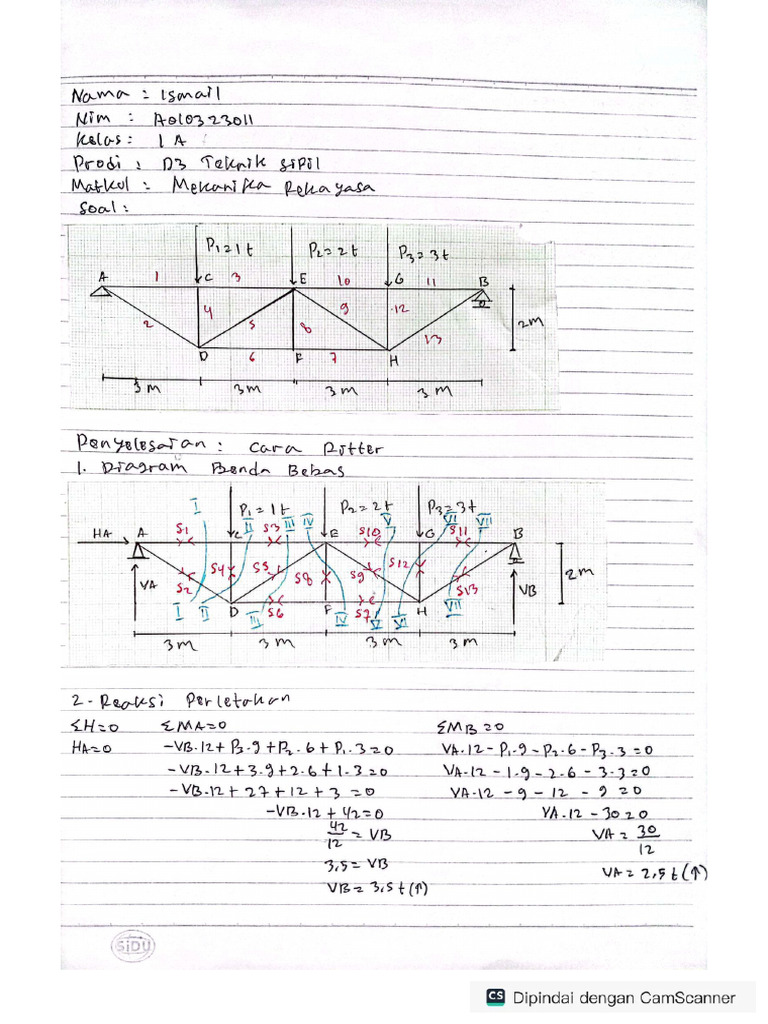 Nama : Ismail
Nim : A010323011
Kelas : 1A
Prodi : D3 Teknik Sipil
Matkul : Mekanika Rekayasa
Soal :
P1=1t P2=2t P3=3t
A 1 C 3 E 10 G 11 B
2 4 5 8 9 12 13 2m
D 6 F 7 H
3 m 3 m 3 m 3 m
Penyelesaian : Cara Ritter
1. Diagram Benda Bebas
I P1=1t P2=2t P3=3t
HA A S1 C II S3 III IV E S10 V G VI S11 VII B
VA S2 S4 S5 S8 S9 S12 S13 VB 2m
I II D III S6 F IV S7 V VI H VII
3 m 3 m 3 m 3 m
2. Reaksi Perletakan
ΣH=0 ΣMA=0 ΣMB=0
HA=0 -VB.12+P3.9+P2.6+P1.3=0 VA.12-P1.9-P2.6-P3.3=0
-VB.12+3.9+2.6+1.3=0 VA.12-1.9-2.6-3.3=0
-VB.12+27+12+3=0 VA.12-9-12-9=0
-VB.12+42=0 VA.12-30=0
42/12=VB VA=30/12
3,5=VB VA=2,5t(↑)
VB=3,5t(↑)
SiDU
CS Dipindai dengan CamScanner